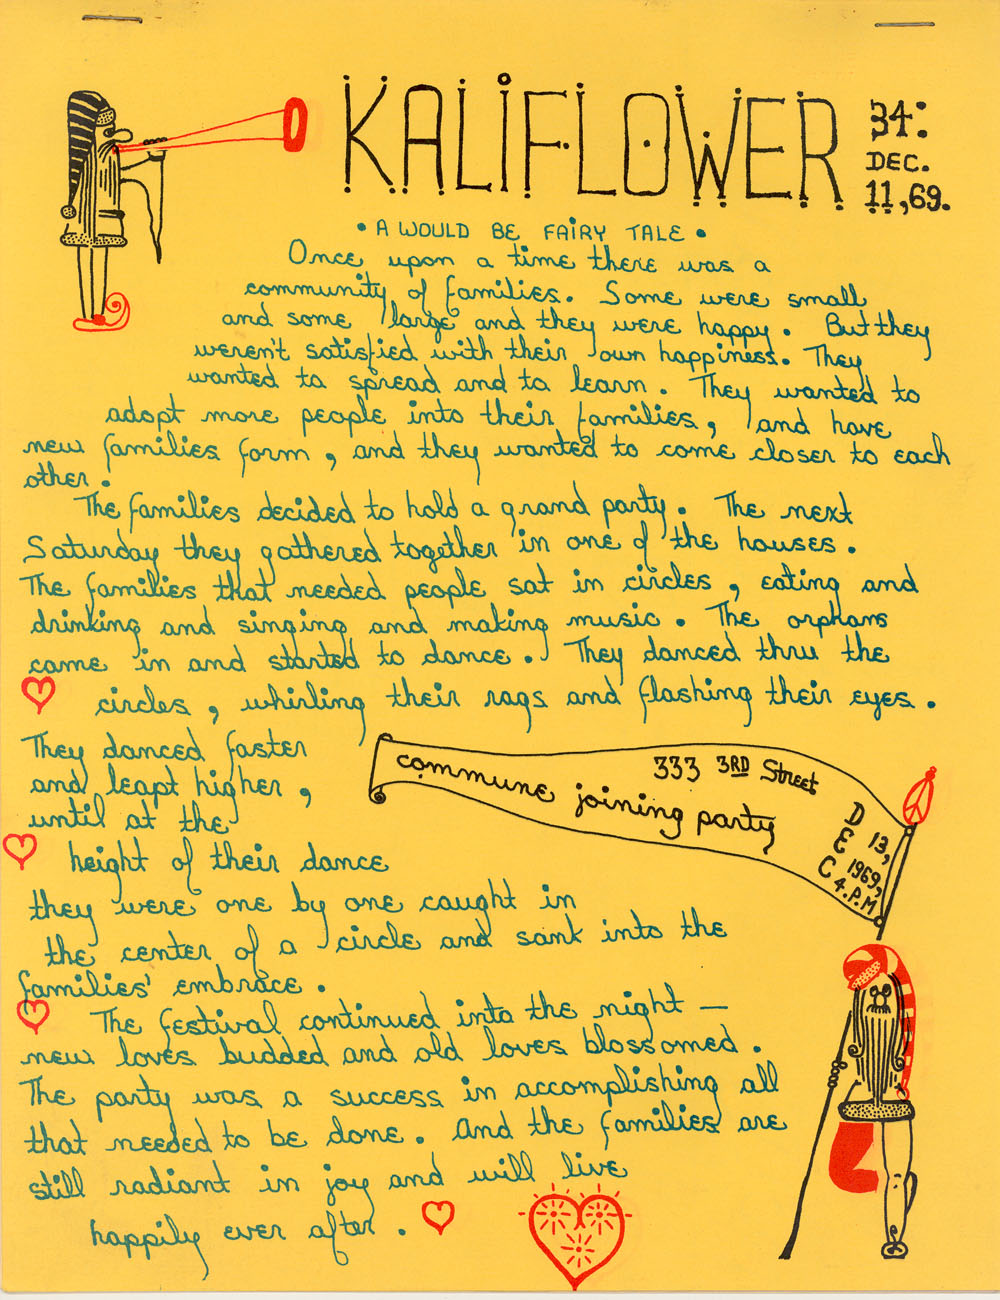 KALIFLOWER
34:
DEC.
11,69.
• A WOULD BE FAIRY TALE •
Once upon a time there was a
community of families. Some were small
and some large and they were happy. But they
weren't satisfied with their own happiness. They
wanted to spread and to learn. They wanted to
adopt more people into their families, and have
new families form, and they wanted to come closer to each
other.
The families decided to hold a grand party. The next
Saturday they gathered together in one of the houses.
The families that needed people sat in circles, eating and
drinking and singing and making music. The orphans
came in and started to dance. They danced thru the
circles, whirling their rags and flashing their eyes.
They danced faster
and leapt higher,
until at the
height of their dance
they were one by one caught in
the center of a circle and sank into the
families' embrace.
The festival continued into the night —
new loves budded and old loves blossomed.
The party was a success in accomplishing all
that needed to be done. And the families are
still radiant in joy and will live
happily ever after.
commune joining party
333 3RD Street
DEC 13,
1969,
4.P.M